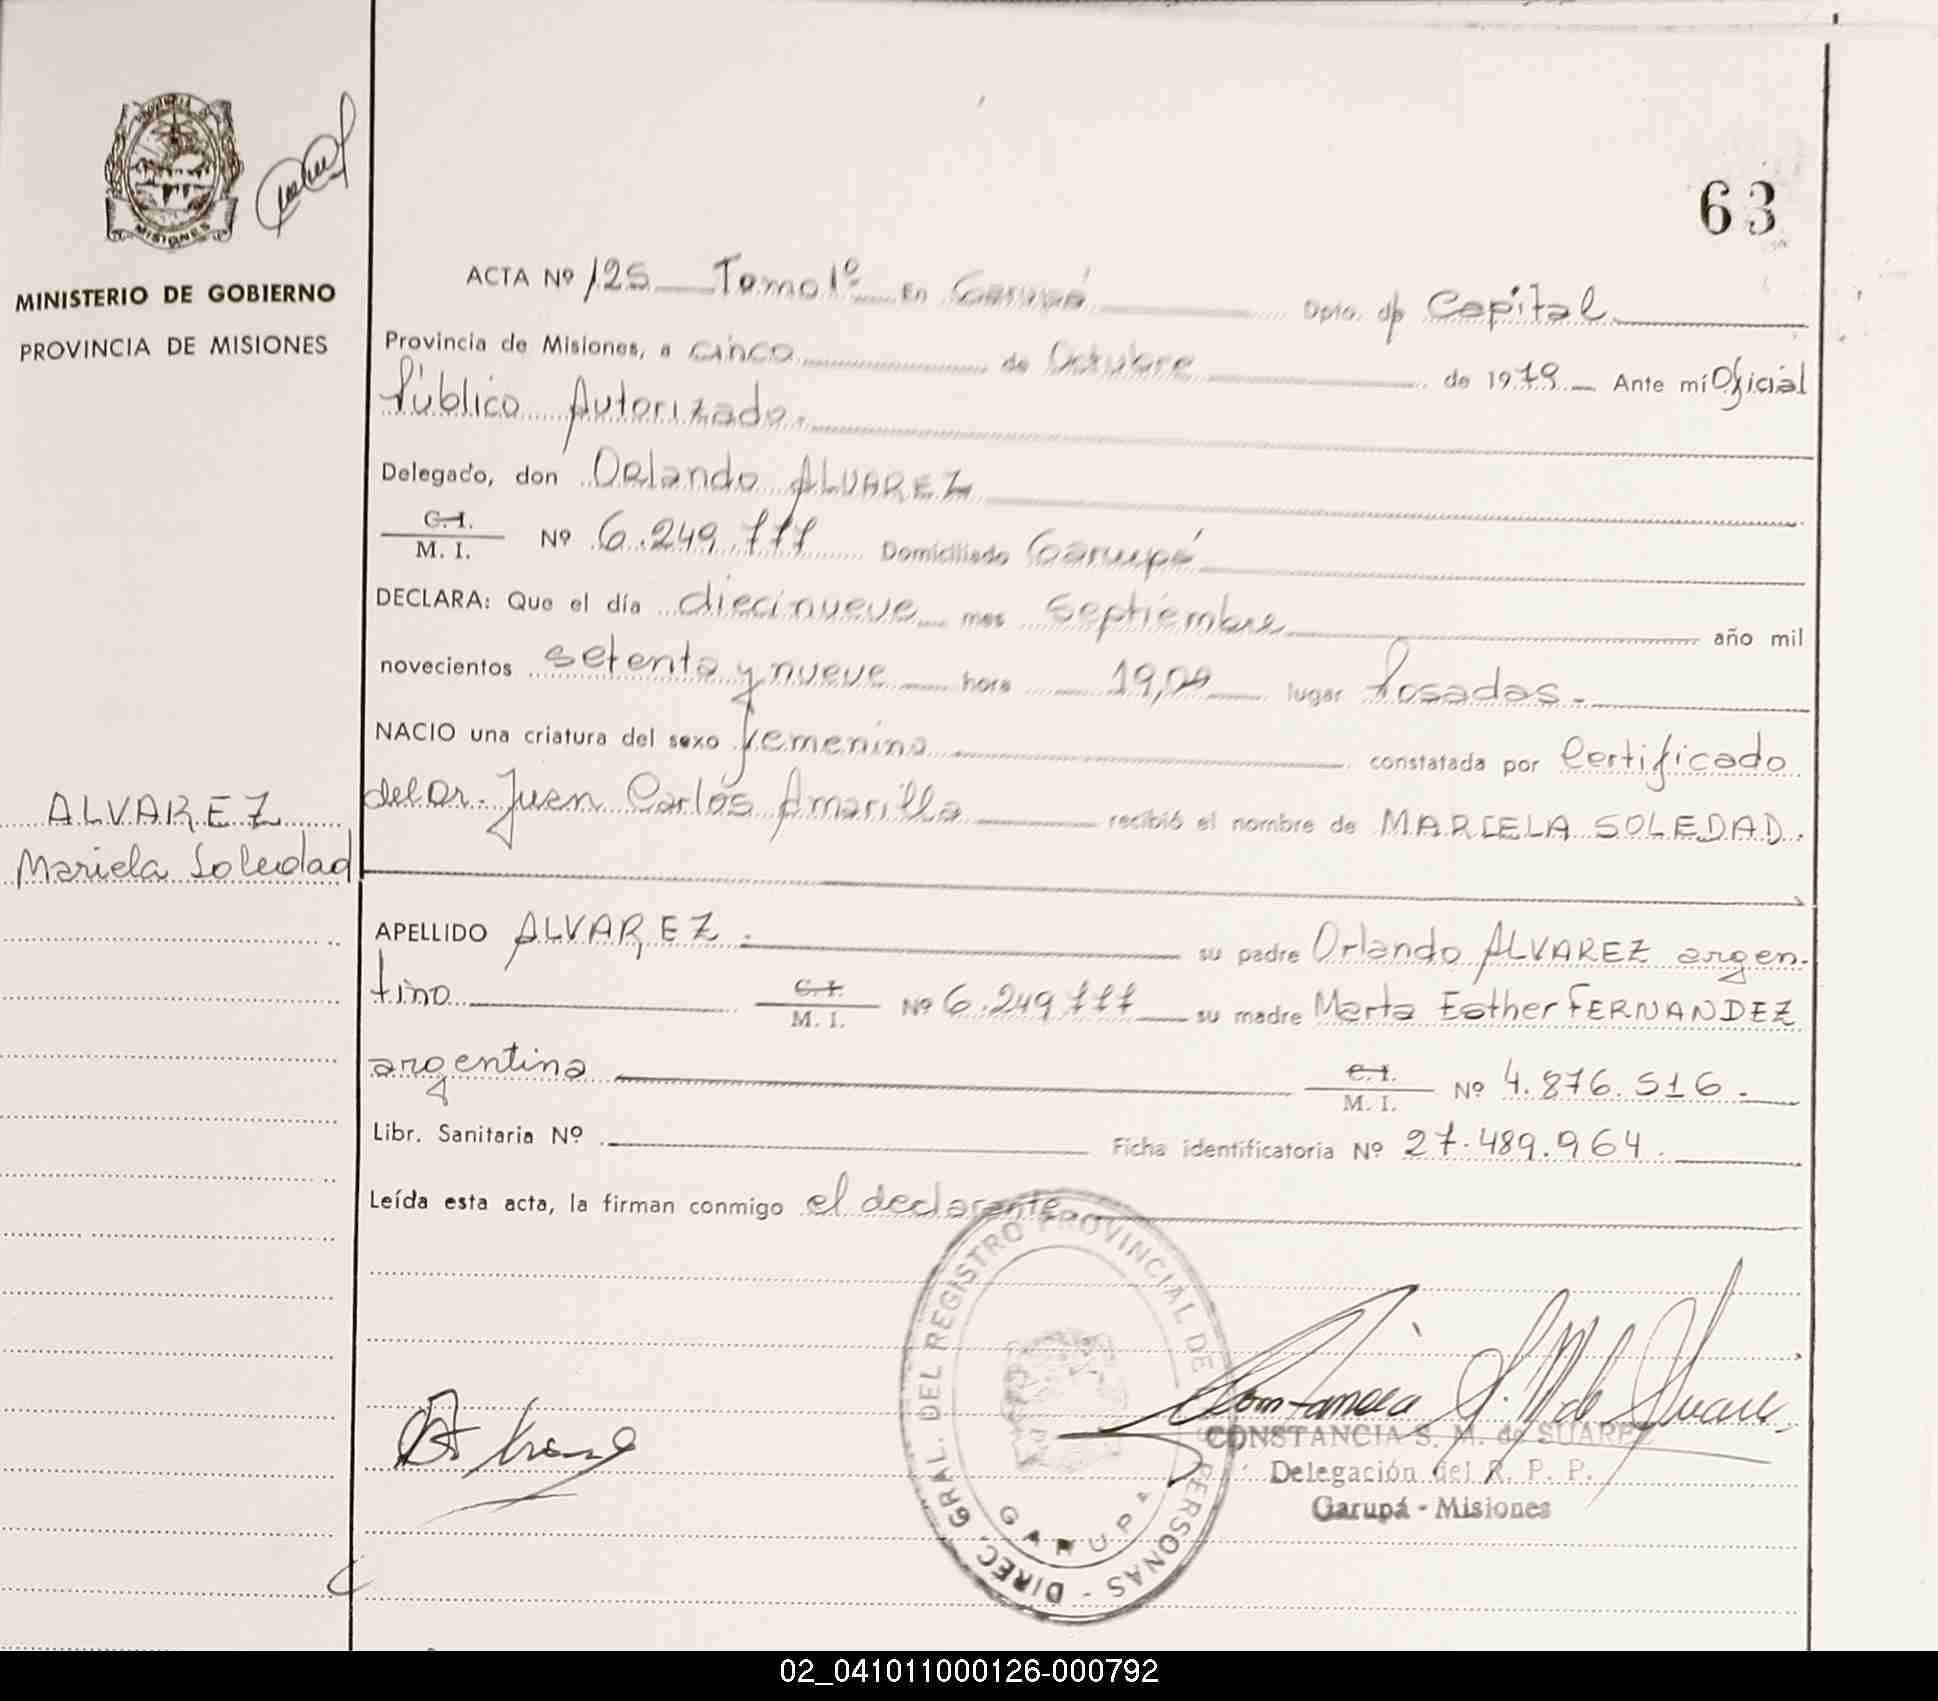 63
MISIONES
MINISTERIO DE GOBIERNO
PROVINCIA DE MISIONES
ALVAREZ
Mariela Soledad
ACTA Nº 125 Tomo 1º En Garupá Dpto. de Capital
Provincia de Misiones, a cinco de Octubre de 1979 Ante mí Oficial
Público Autorizado.
Delegado, don Orlando ALVAREZ
C.I.
M. I. Nº 6.249.777 Domiciliado Garupá
DECLARA: Que el día diecinueve mes septiembre año mil
novecientos setenta y nueve hora 19,00 lugar Posadas.
NACIO una criatura del sexo femenino constatada por Certificado
del Dr. Juan Carlos Amarilla recibió el nombre de MARIELA SOLEDAD.
APELLIDO ALVAREZ. su padre Orlando ALVAREZ argen-
tino C.I. M. I. Nº 6.249.777 su madre Marta Esther FERNANDEZ
argentina C.I. M. I. Nº 4.876.516.
Libr. Sanitaria Nº Ficha identificatoria Nº 27.489.964.
Leída esta acta, la firman conmigo el declarante.
DIREC. GRAL. DEL REGISTRO PROVINCIAL DE PERSONAS - GARUPA
CONSTANCIA S. M. de SUAREZ
Delegación del R. P. P.
Garupá - Misiones
02_041011000126-000792